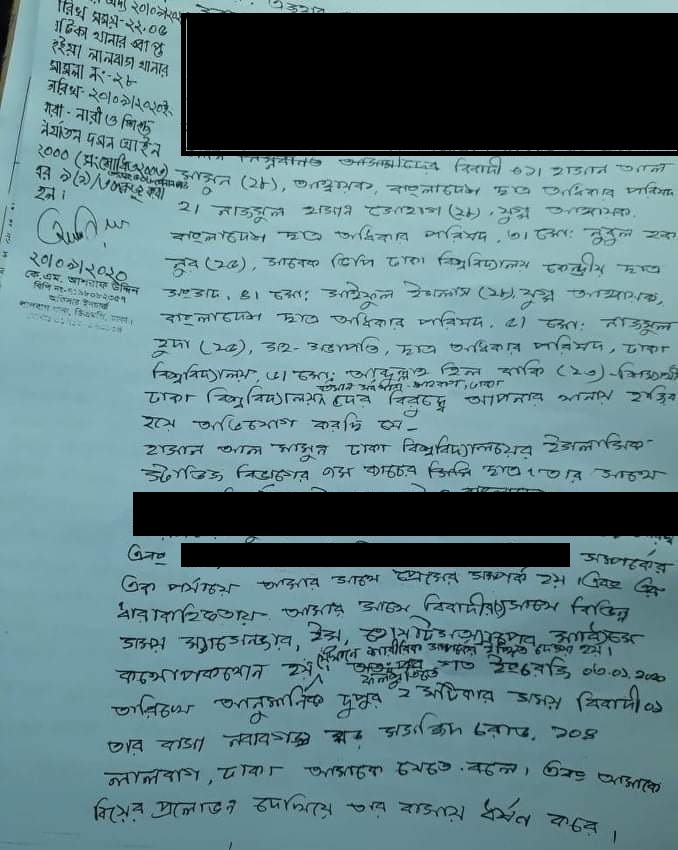 এজাহার
২০/০৯/২০২০
সময়-২২.০৫
ঘটিকা থানার প্রাপ্ত
হইয়া লালবাগ থানার
মামলা নং-২৮
তারিখ-২০/০৯/২০২০ইং
ধারা-নারী ও শিশু
নির্যাতন দমন আইন
২০০০ (সংশোধিত ২০০৩)
এর ৯(১)/৩০ রুজু করা
হল।
২০/০৯/২০২০
কে.এম. আশরাফ উদ্দিন
অফিসার ইনচার্জ
লালবাগ থানা, ডিএমপি, ঢাকা।
নিম্নবর্ণিত আসামীদের বিবাদী ০১। হাসান আল
মামুন (২৮), আহ্বায়ক, বাংলাদেশ ছাত্র অধিকার পরিষদ
২। নাজমুল হাসান সোহাগ (২৮), যুগ্ম আহ্বায়ক,
বাংলাদেশ ছাত্র অধিকার পরিষদ, ৩। মো: নুরুল হক
নুর (২৫), সাবেক ভিপি ঢাকা বিশ্ববিদ্যালয় কেন্দ্রীয় ছাত্র
সংসদ, ৪। মো: সাইফুল ইসলাম (২৮), যুগ্ম আহ্বায়ক,
বাংলাদেশ ছাত্র অধিকার পরিষদ, ৫। মো: নাজমুল
হুদা (২৫), সহ-সভাপতি, ছাত্র অধিকার পরিষদ, ঢাকা
বিশ্ববিদ্যালয়, ৬। মো: আব্দুল্লাহ হিল বাকি (২৩)-শিক্ষার্থী
ঢাকা বিশ্ববিদ্যালয় দের বিরুদ্ধে আপনার থানায় হাজির
হয়ে অভিযোগ করছি যে-
হাসান আল মামুন ঢাকা বিশ্ববিদ্যালয়ের ইসলামিক
স্টাডিজ বিভাগের ছাত্র। তার সাথে
এবং সম্পর্কের
এক পর্যায়ে আমার সাথে প্রেমের সম্পর্ক হয়। এবং এর
ধারাবাহিকতায় আমার সাথে বিবাদীর সাথে বিভিন্ন
সময় ম্যাসেনজার, ইমু, হোয়াটসঅ্যাপের মাধ্যমে
কথোপকথোন হয়। গত ইংরেজি ০৩.০১.২০২০
তারিখে আনুমানিক দুপুর ২ ঘটিকার সময় বিবাদী ০১
তার বাসা নবাবগঞ্জ বড় মসজিদ রোড, ১০৪
লালবাগ, ঢাকা আমাকে যেতে বলে। এবং আমাকে
বিয়ের প্রলোভন দেখিয়ে তার বাসায় ধর্ষন করে।